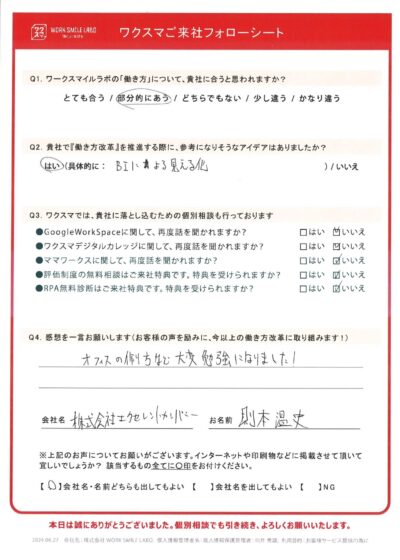 ワクスマ
WORK SMILE LABO
ワクスマご来社フォローシート
Q1. ワークスマイルラボの「働き方」について、貴社に合うと思われますか?
とても合う / 部分的にあう / どちらでもない / 少し違う / かなり違う
Q2. 貴社で『働き方改革』を推進する際に、参考になりそうなアイデアはありましたか?
はい (具体的に: BIによる見える化 ) / いいえ
Q3. ワクスマでは、貴社に落とし込むための個別相談も行っております
●GoogleWorkSpaceに関して、再度話を聞かれますか? □はい ☑いいえ
●ワクスマデジタルカレッジに関して、再度話を聞かれますか? □はい ☑いいえ
●ママワークスに関して、再度話を聞かれますか? □はい ☑いいえ
●評価制度の無料相談はご来社特典です。特典を受けられますか? □はい ☑いいえ
●RPA無料診断はご来社特典です。特典を受けられますか? □はい ☑いいえ
Q4. 感想を一言お願いします(お客様の声を励みに、今以上の働き方改革に取り組みます!)
オフィスの作り方など大変勉強になりました!
会社名 株式会社エクセレントカンパニー お名前 則本温史
※上記のお声についてお願いがございます。インターネットや印刷物などに掲載させて頂いて
宜しいでしょうか? 該当するもの全てに〇印をお付けください。
【〇】会社名・名前どちらも出してもよい 【 】会社名を出してもよい 【 】NG
本日は誠にありがとうございました。個別相談でも引き続き、よろしくお願いいたします。